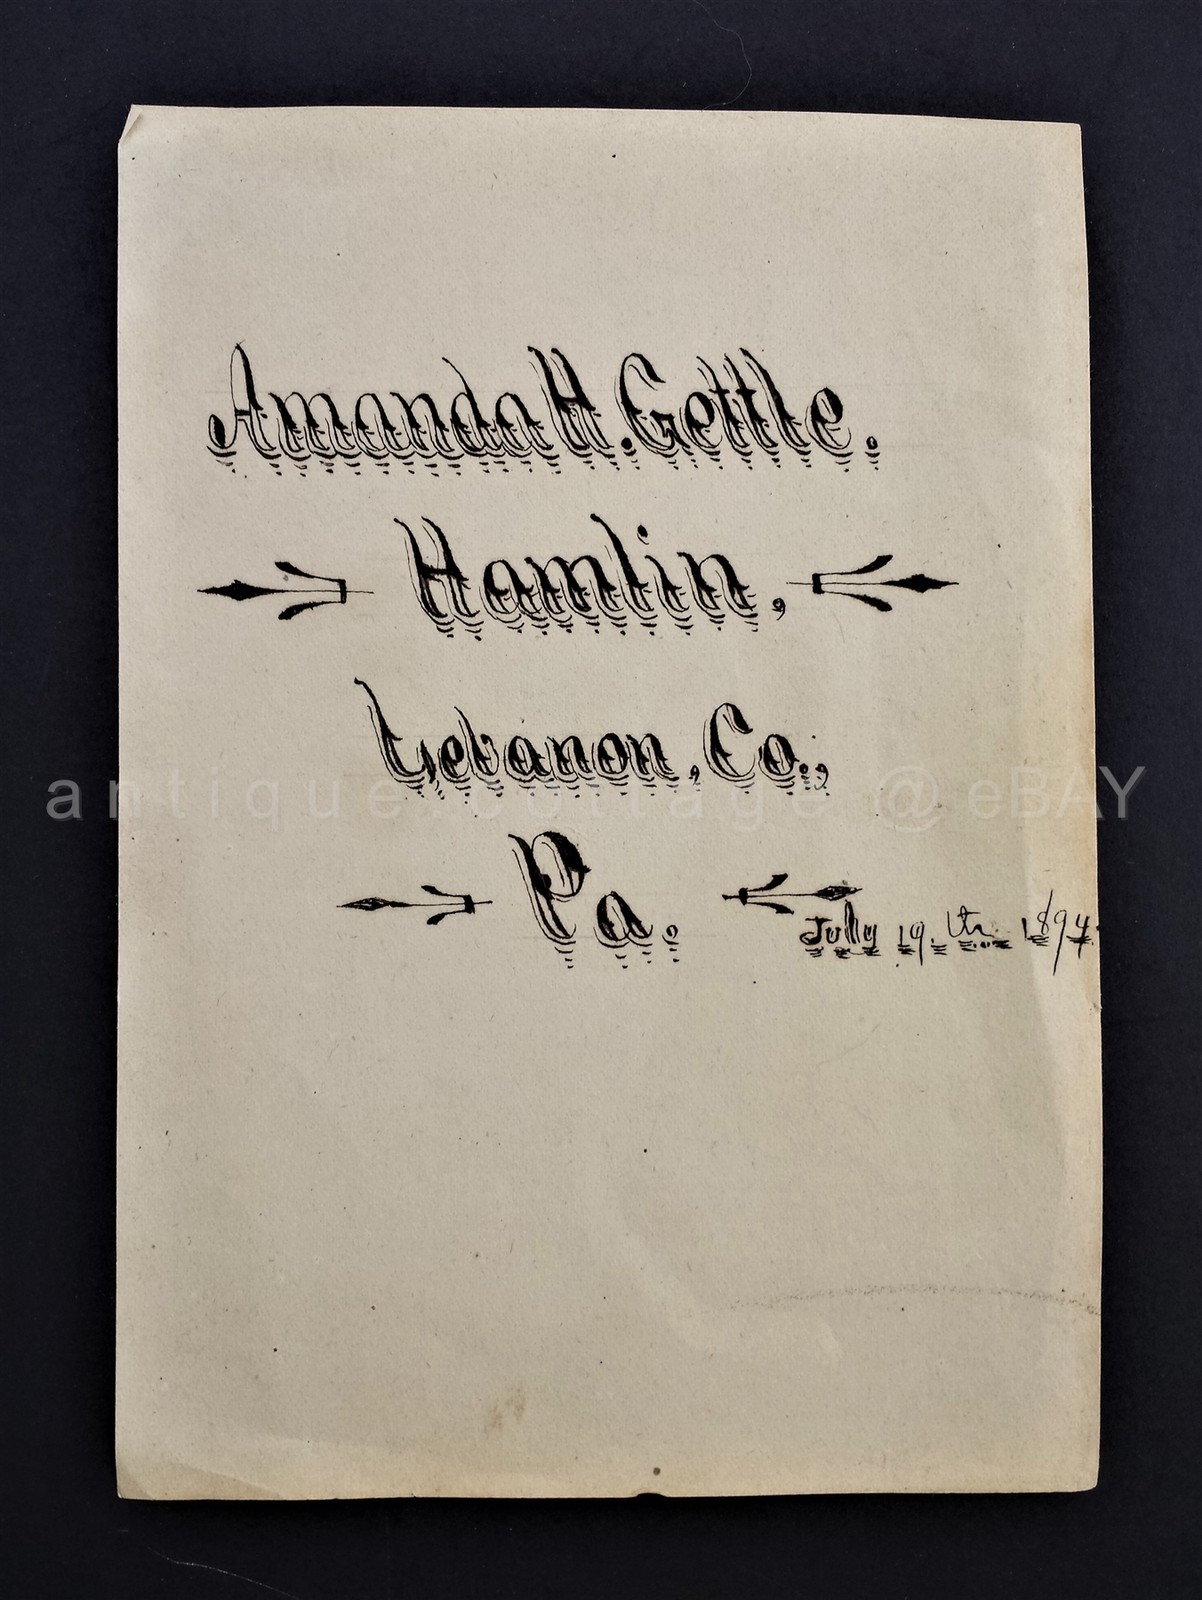 Amanda H. Gettle.
Hamlin,
Lebanon, Co.,
Pa.
July 19. th. 1894.
antique.cottage @ eBAY